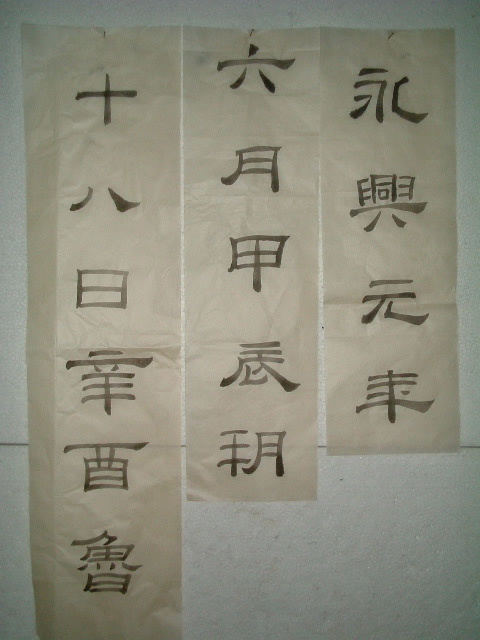 永興元年
六月甲辰朔
十八日辛酉魯